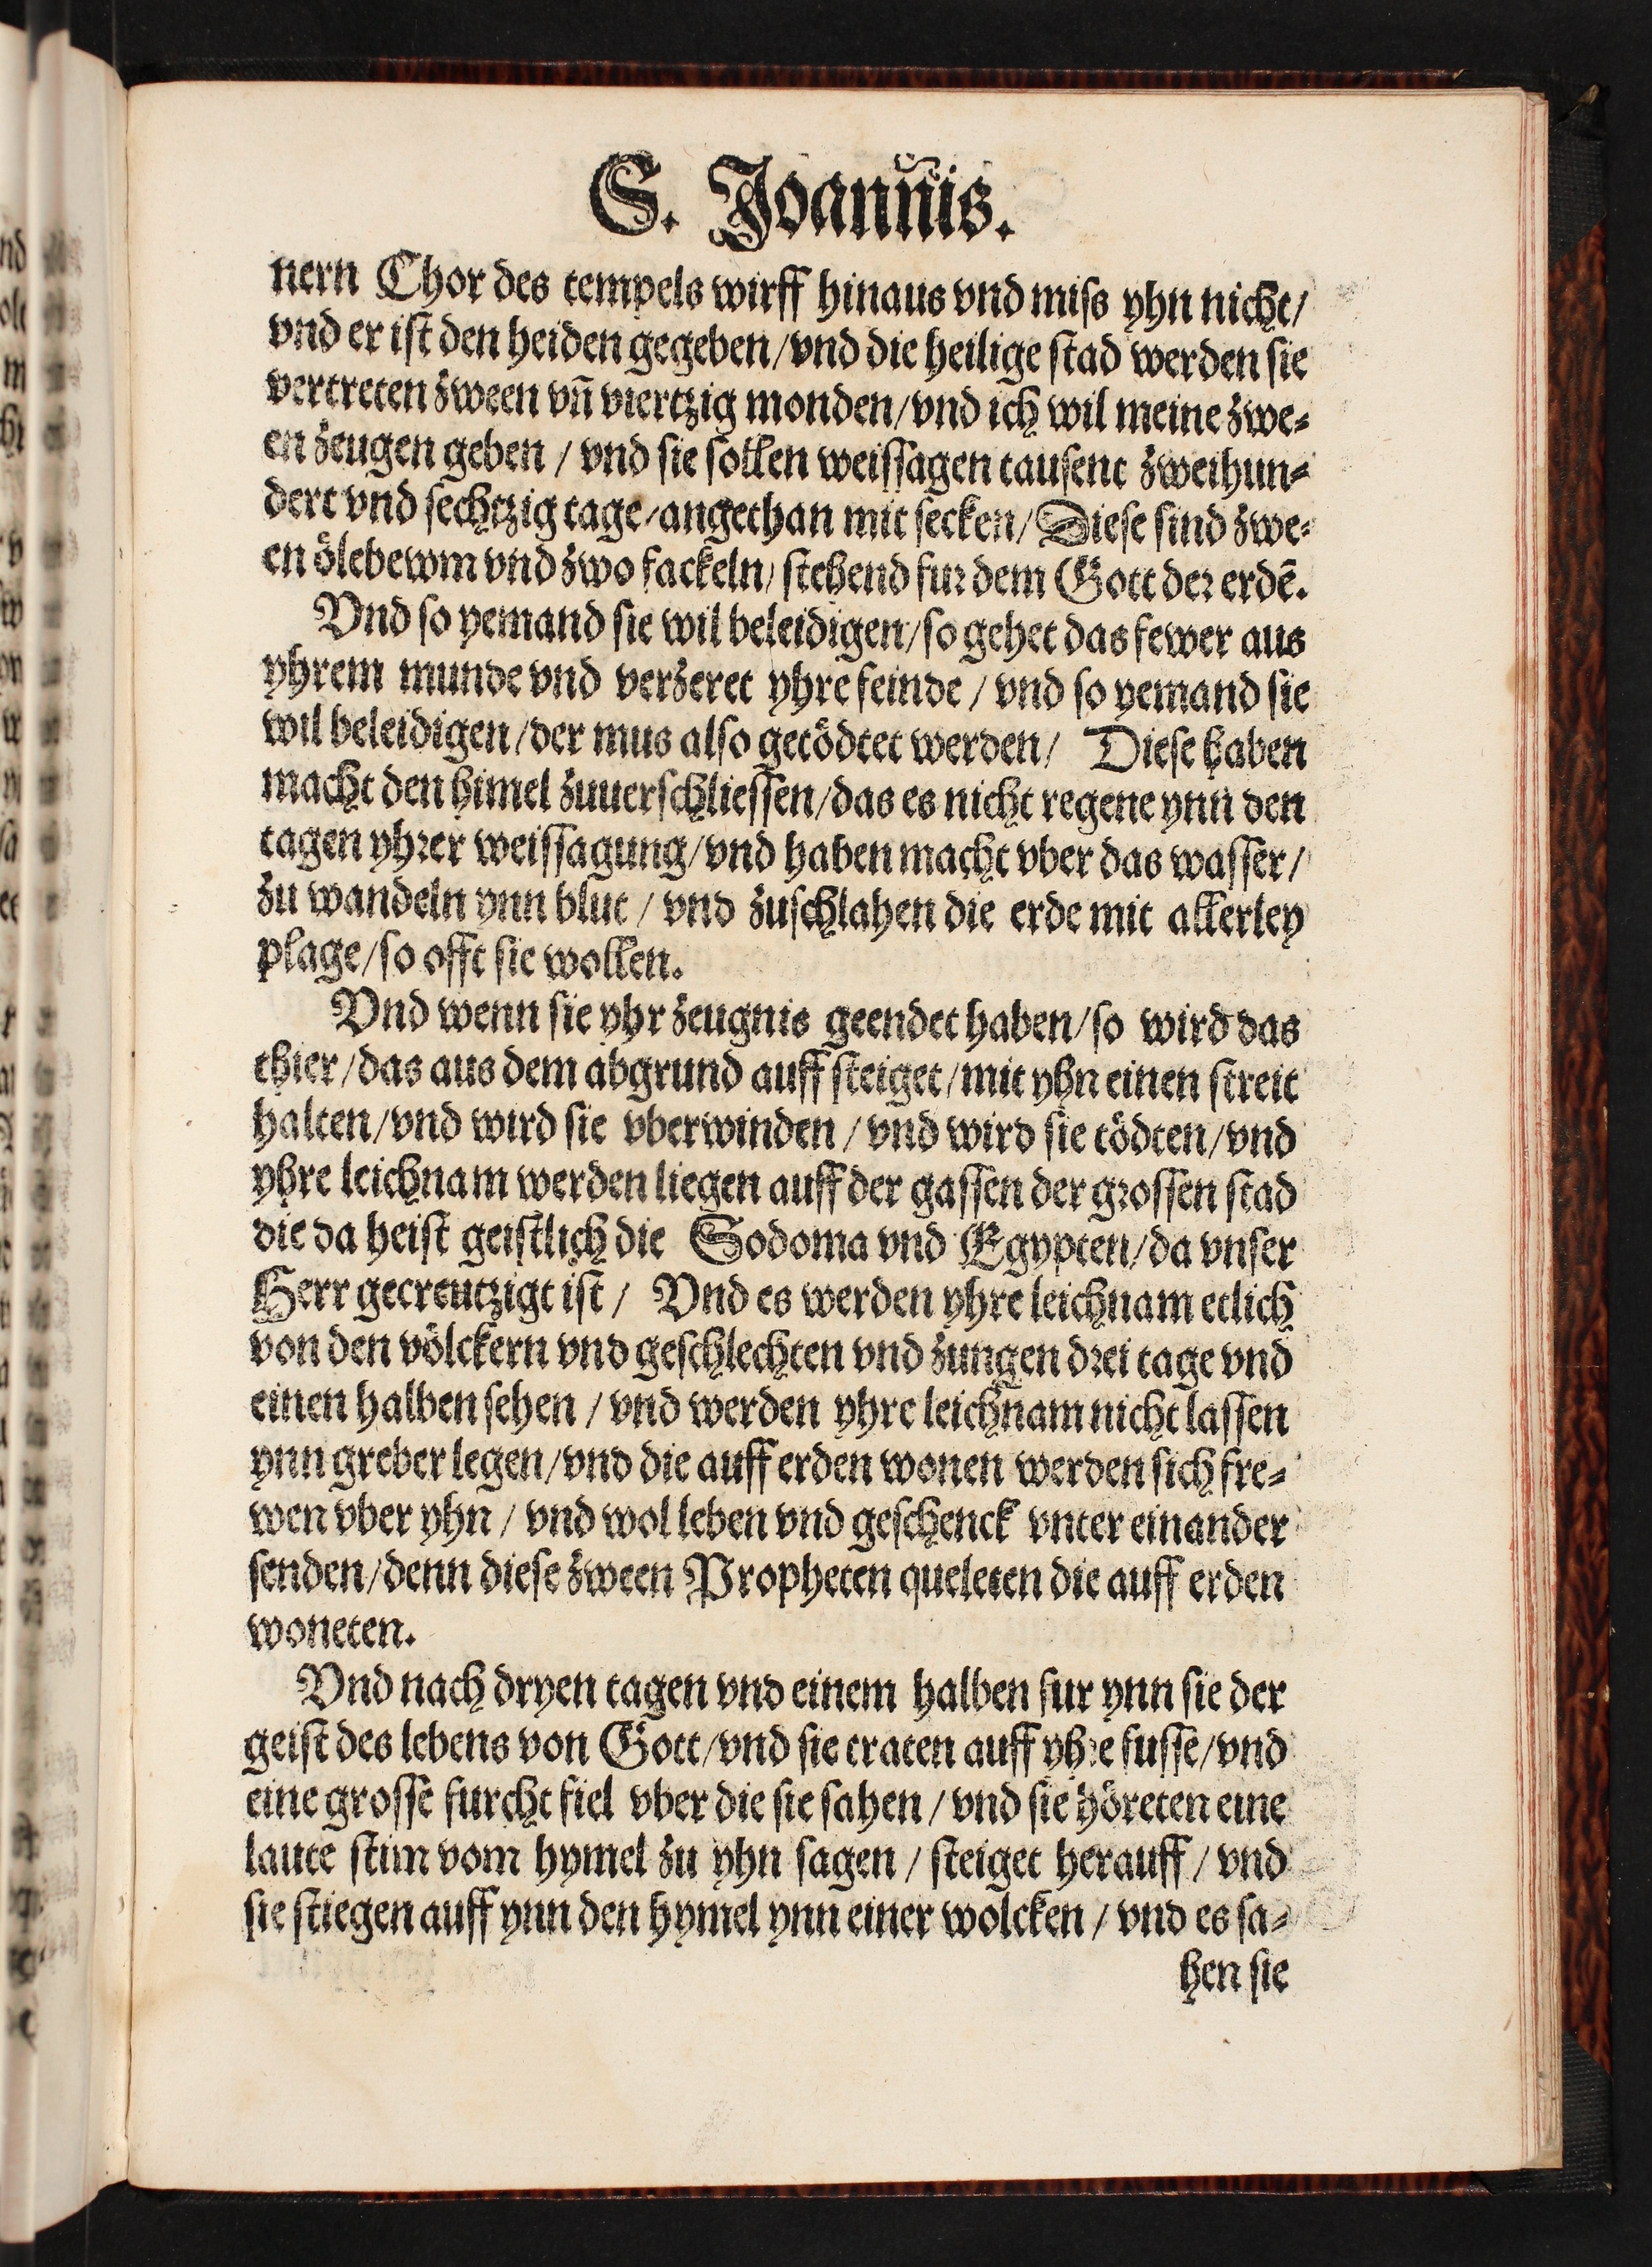 S. Joannis.
nern Chor des tempels wirff hinaus vnd miss yhn nicht/
vnd er ist den heiden gegeben/vnd die heilige stad werden sie
vertreten zween vn̄ viertzig monden/vnd ich wil meine zwe⸗
en zeugen geben / vnd sie sollen weissagen tausent zweihun⸗
dert vnd sechtzig tage/angethan mit secken/ Diese sind zwe⸗
en ölebewm vnd zwo fackeln/ stehend fur dem Gott der erdē.
Vnd so yemand sie wil beleidigen/so gehet das fewer aus
yhrem munde vnd verzeret yhre feinde / vnd so yemand sie
wil beleidigen/der mus also getödtet werden/ Diese haben
macht den himel zuuerschliessen/das es nicht regene ynn den
tagen yhrer weissagung/vnd haben macht vber das wasser/
zu wandeln ynn blut / vnd zuschlahen die erde mit allerley
plage/so offt sie wollen.
Vnd wenn sie yhr zeugnis geendet haben/so wird das
thier/das aus dem abgrund auff steiget/mit yhn einen streit
halten/vnd wird sie vberwinden / vnd wird sie tödten/vnd
yhre leichnam werden liegen auff der gassen der grossen stad
die da heist geistlich die Sodoma vnd Egypten/da vnser
Herr gecreutzigt ist / Vnd es werden yhre leichnam etlich
von den völckern vnd geschlechten vnd zungen drei tage vnd
einen halben sehen / vnd werden yhre leichnam nicht lassen
ynn greber legen/vnd die auff erden wonen werden sich fre⸗
wen vber yhn / vnd wol leben vnd geschenck vnter einander
senden/denn diese zween Propheten queleten die auff erden
woneten.
Vnd nach dryen tagen vnd einem halben fur ynn sie der
geist des lebens von Gott/vnd sie traten auff yhre fusse/vnd
eine grosse furcht fiel vber die sie sahen / vnd sie höreten eine
laute stim vom hymel zu yhn sagen / steiget herauff / vnd
sie stiegen auff ynn den hymel ynn einer wolcken / vnd es sa⸗
hen sie